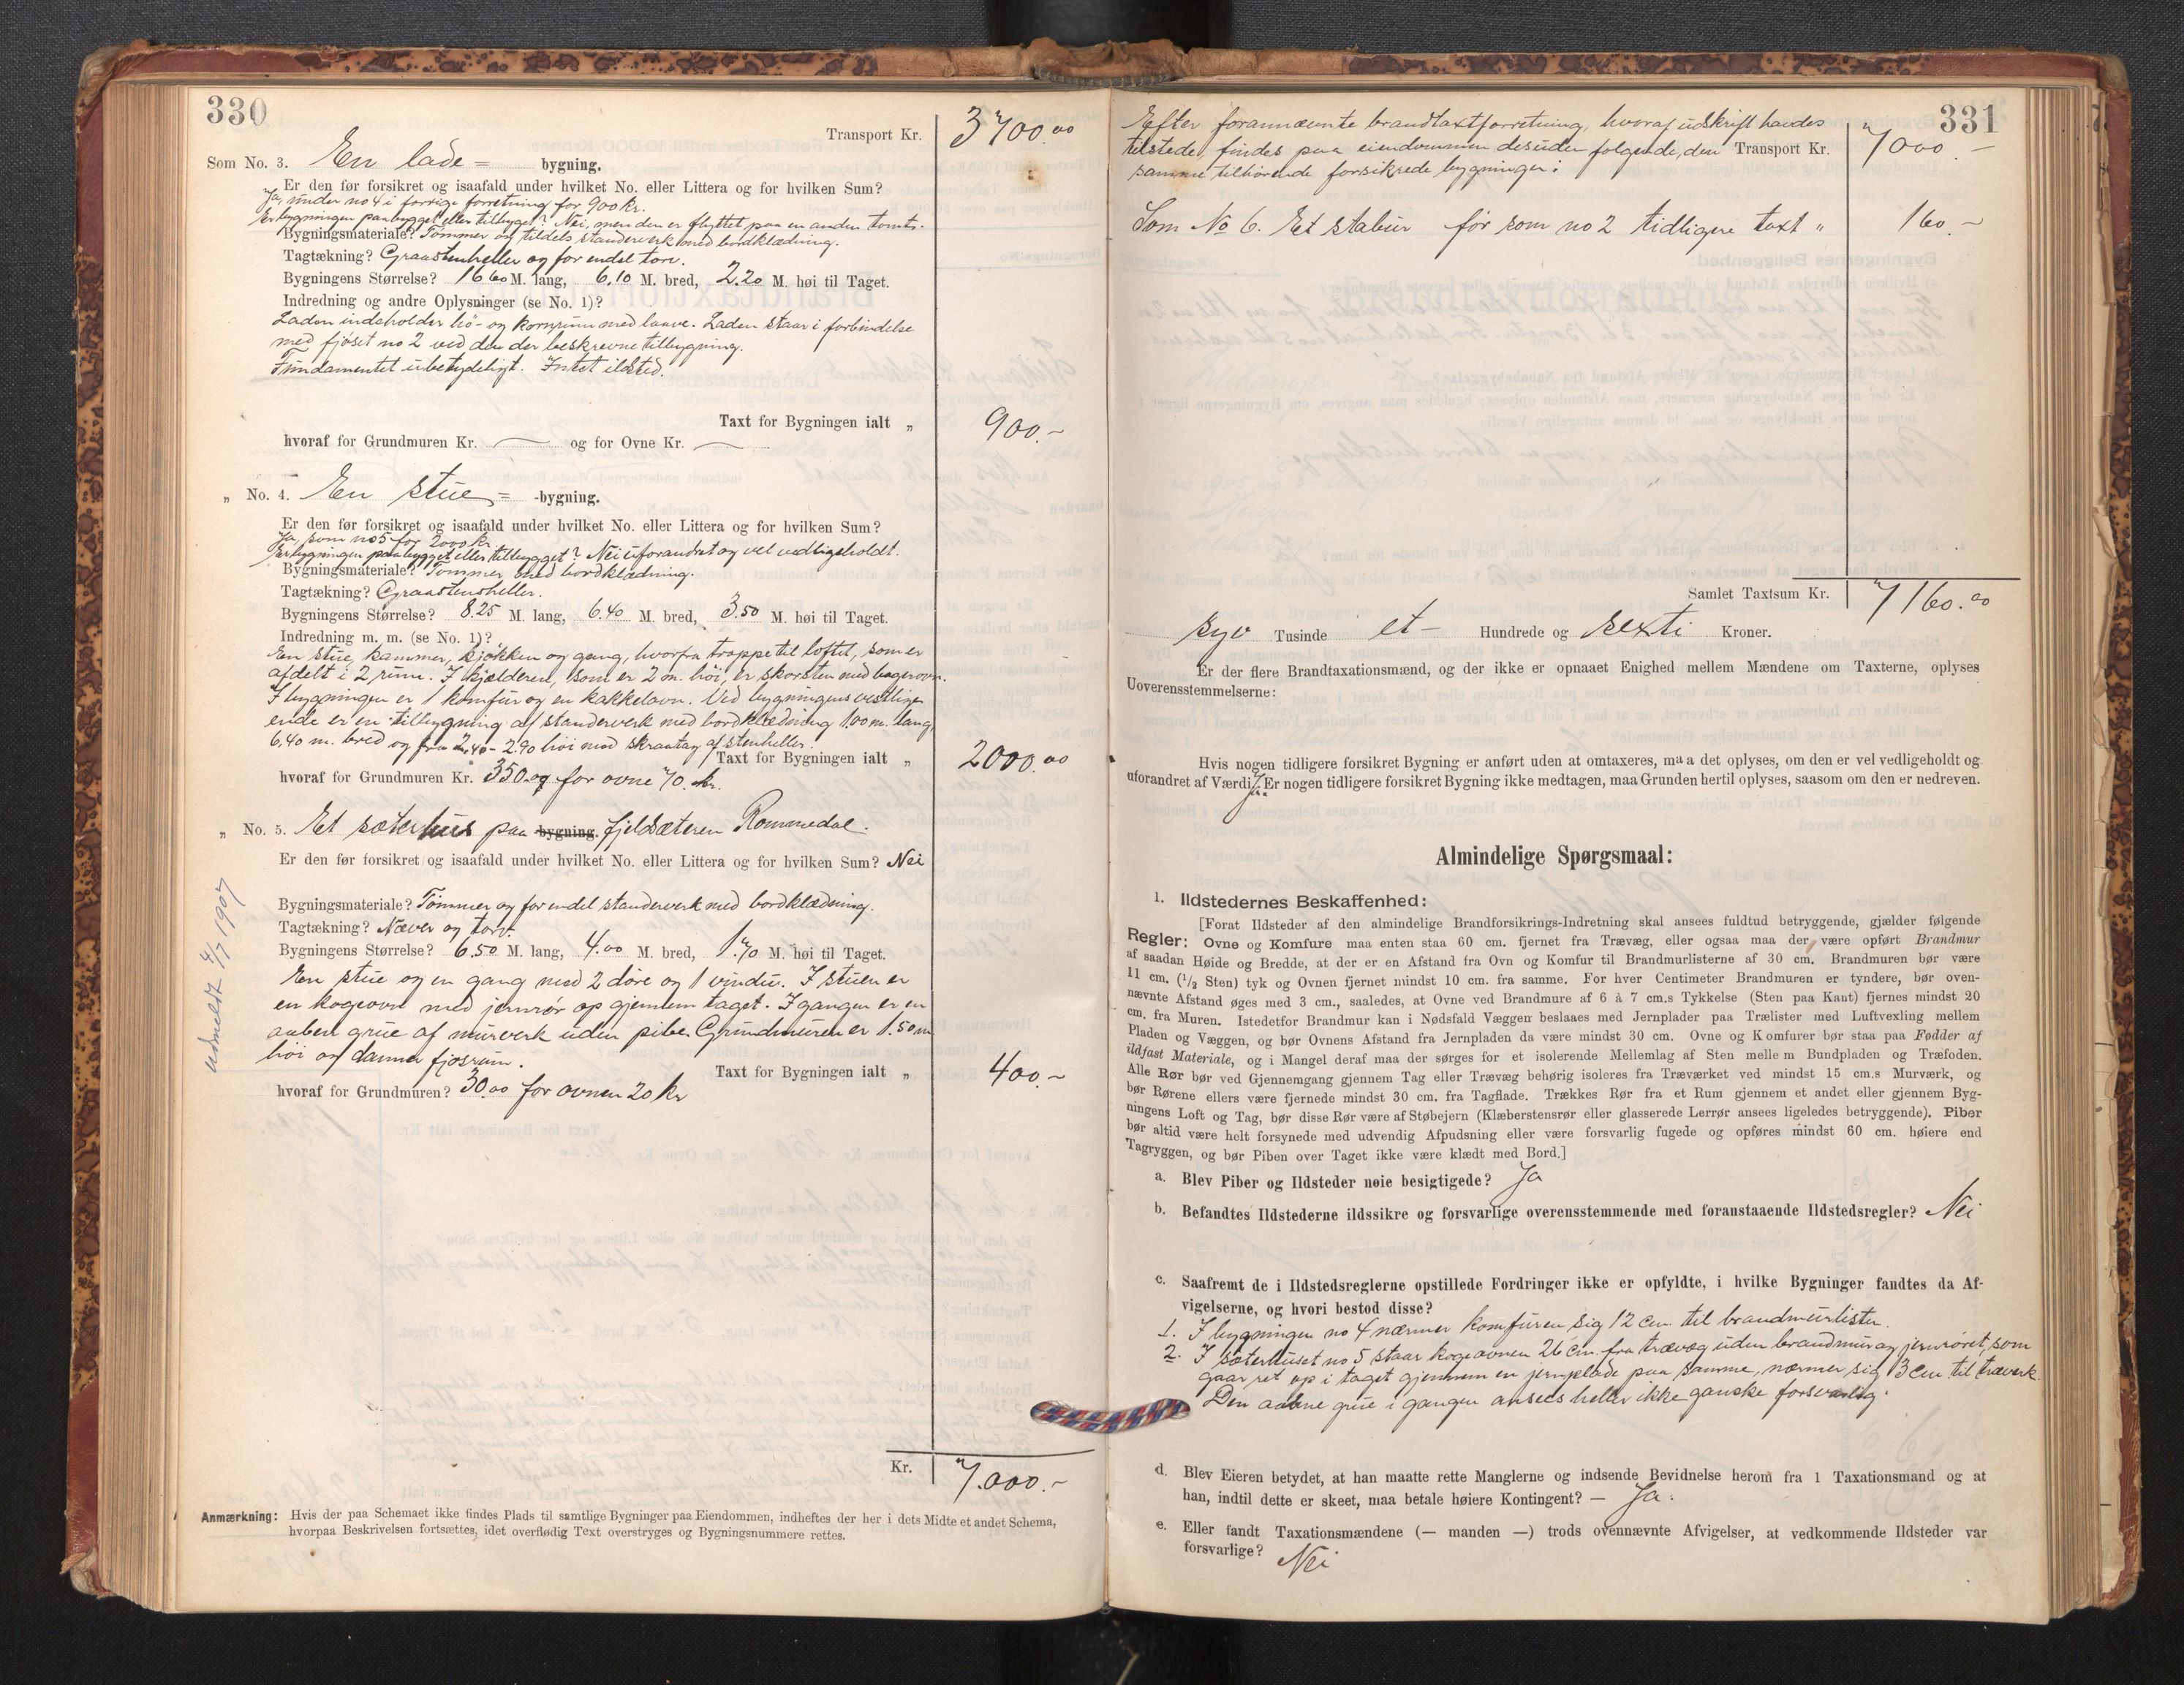 330
Transport Kr. 3700.00
Som No. 3. En lade= bygning.
Er den før forsikret og isaafald under hvilket No. eller Littera og for hvilken Sum?
Ja, under no 4 i forrige forretning for 900 kr.
Er bygningen paabygget eller tilbygget? Nei, men den er flyttet paa en anden tomt.
Bygningsmateriale? Tømmer og tildels standerverk med bordklædning.
Tagtækning? Graastenheller og for endel torv.
Bygningens Størrelse? 16.60 M. lang, 6.10 M. bred, 2.20 M. høi til Taget.
Indredning og andre Oplysninger (se No. 1)?
Laden indeholder hö- og kornrum med laave. Laden staar i forbindelse
med fjöset no 2 ved den der beskrevne tilbygning.
Fundamentet ubetydeligt. Intet ildsted.
Taxt for Bygningen ialt „ 900.-
hvoraf for Grundmuren Kr. — og for Ovne Kr. —
„ No. 4. En stue= -bygning.
Er den før forsikret og isaafald under hvilket No. eller Littera og for hvilken Sum?
Ja, som no 5 for 2000 kr.
Er bygningen paabygget eller tilbygget? Nei uforandret og vel vedligeholdt.
Bygningsmateriale? Tømmer med bordklædning.
Tagtækning? Graastensheller.
Bygningens Størrelse? 8.25 M. lang, 6.40 M. bred, 3.50 M. høi til Taget.
Indredning m. m. (se No. 1)?
En stue, kammer, kjökken og gang, hvorfra trappe til loftet, som er
afdelt i 2 rum. I kjelderen, som er 2 m. höi, er skorsten med bagerovn.
I bygningen er 1 komfur og en kakkelovn. Ved bygningens vestlige
ende er en tilbygning af standerverk med bordklædning 1.00 m. lang,
6,40 m. bred og fra 2,40 - 2.90 höi med skraatag af stenheller.
Taxt for Bygningen ialt „ 2000.00
hvoraf for Grundmuren Kr. 350.og for ovne 70. kr.
„ No. 5. Et sæterhus paa bygning. fjeldsæteren Rommedal.
Er den før forsikret og isaafald under hvilket No. eller Littera og for hvilken Sum? Nei
Bygningsmateriale? Tømmer og for endel standerverk med bordklædning.
Tagtækning? Næver og torv.
Bygningens Størrelse? 6.50 M. lang, 4.00 M. bred, 1.70 M. høi til Taget.
En stue og en gang med 2 döre og 1 vindu. I stuen er
en kogeovn med jernrör op gjennem taget. I gangen er en
aaben grue af murverk uden pibe. Grundmuren er 1.50 m
höi og danner fjösrum.
Taxt for Bygningen ialt „ 400.-
hvoraf for Grundmuren? 30.00 for ovnen 20 kr
udmeldt 4/7 1907
Kr. 7.000.-
Anmærkning: Hvis der paa Schemaet ikke findes Plads til samtlige Bygninger paa Eiendommen, indheftes der her i dets Midte et andet Schema,
hvorpaa Beskrivelsen fortsættes, idet overflødig Text overstryges og Bygningsnummere rettes.
331
Efter forannævnte brandtaxtforretning, hvoraf udskrift havdes
tilstede, findes paa eiendommen desuden følgende, den Transport Kr. 7000.-
samme tilhörende forsikrede bygninger:
Som No 6. Et stabur för som no 2 tidligere taxt „ 160.-
Samlet Taxtsum Kr. 7160.00
syv Tusinde et- Hundrede og sexti Kroner.
Er der flere Brandtaxationsmænd, og der ikke er opnaaet Enighed mellem Mændene om Taxterne, oplyses
Uoverensstemmelserne:
Hvis nogen tidligere forsikret Bygning er anført uden at omtaxeres, maa det oplyses, om den er vel vedligeholdt og
uforandret af Værdi? Ja. Er nogen tidligere forsikret Bygning ikke medtagen, maa Grunden hertil oplyses, saasom om den er nedreven.
Almindelige Spørgsmaal:
1. Ildstedernes Beskaffenhed:
[Forat Ildsteder af den almindelige Brandforsikrings-Indretning skal ansees fuldtud betryggende, gjælder følgende
Regler: Ovne og Komfure maa enten staa 60 cm. fjernet fra Trævæg, eller ogsaa maa der være opført Brandmur
af saadan Høide og Bredde, at der er en Afstand fra Ovn og Komfur til Brandmurlisterne af 30 cm. Brandmuren bør være
11 cm. (1/2 Sten) tyk og Ovnen fjernet mindst 10 cm. fra samme. For hver Centimeter Brandmuren er tyndere, bør oven-
nævnte Afstand øges med 3 cm., saaledes, at Ovne ved Brandmure af 6 à 7 cm.s Tykkelse (Sten paa Kant) fjernes mindst 20
cm. fra Muren. Istedetfor Brandmur kan i Nødsfald Væggen beslaaes med Jernplader paa Trælister med Luftvexling mellem
Pladen og Væggen, og bør Ovnens Afstand fra Jernpladen da være mindst 30 cm. Ovne og Komfurer bør staa paa Fødder af
ildfast Materiale, og i Mangel deraf maa der sørges for et isolerende Mellemlag af Sten mellem Bundpladen og Træfoden.
Alle Rør bør ved Gjennemgang gjennem Tag eller Trævæg behørig isoleres fra Træværket ved mindst 15 cm.s Murværk, og
bør Rørene ellers være fjernede mindst 30 cm. fra Tagflade. Trækkes Rør fra et Rum gjennem et andet eller gjennem Byg-
ningens Loft og Tag, bør disse Rør være af Støbejern (Klæberstensrør eller glasserede Lerrør ansees ligeledes betryggende). Piber
bør altid være helt forsynede med udvendig Afpudsning eller være forsvarlig fugede og opføres mindst 60 cm. høiere end
Tagryggen, og bør Piben over Taget ikke være klædt med Bord.]
a. Blev Piber og Ildsteder nøie besigtigede? Ja
b. Befandtes Ildstederne ildssikre og forsvarlige overensstemmende med foranstaaende Ildstedsregler? Nei
c. Saafremt de i Ildstedsreglerne opstillede Fordringer ikke er opfyldte, i hvilke Bygninger fandtes da Af-
vigelserne, og hvori bestod disse?
1. I bygningen no 4 nærmer komfuren sig 12 cm til brandmurlisten.
2. I sæterhuset no 5 staar kogeovnen 26 cm. fra trævæg uden brandmur og jernröret, som
gaar ret op i taget gjennem en jernplade paa samme, nærmer sig 3 cm. til træverk.
Den aabne grue i gangen ansees heller ikke ganske forsvarlig.
d. Blev Eieren betydet, at han maatte rette Manglerne og indsende Bevidnelse herom fra 1 Taxationsmand og at
han, indtil dette er skeet, maa betale høiere Kontingent? — Ja.
e. Eller fandt Taxationsmændene (— manden —) trods ovennævnte Afvigelser, at vedkommende Ildsteder var
forsvarlige? Nei